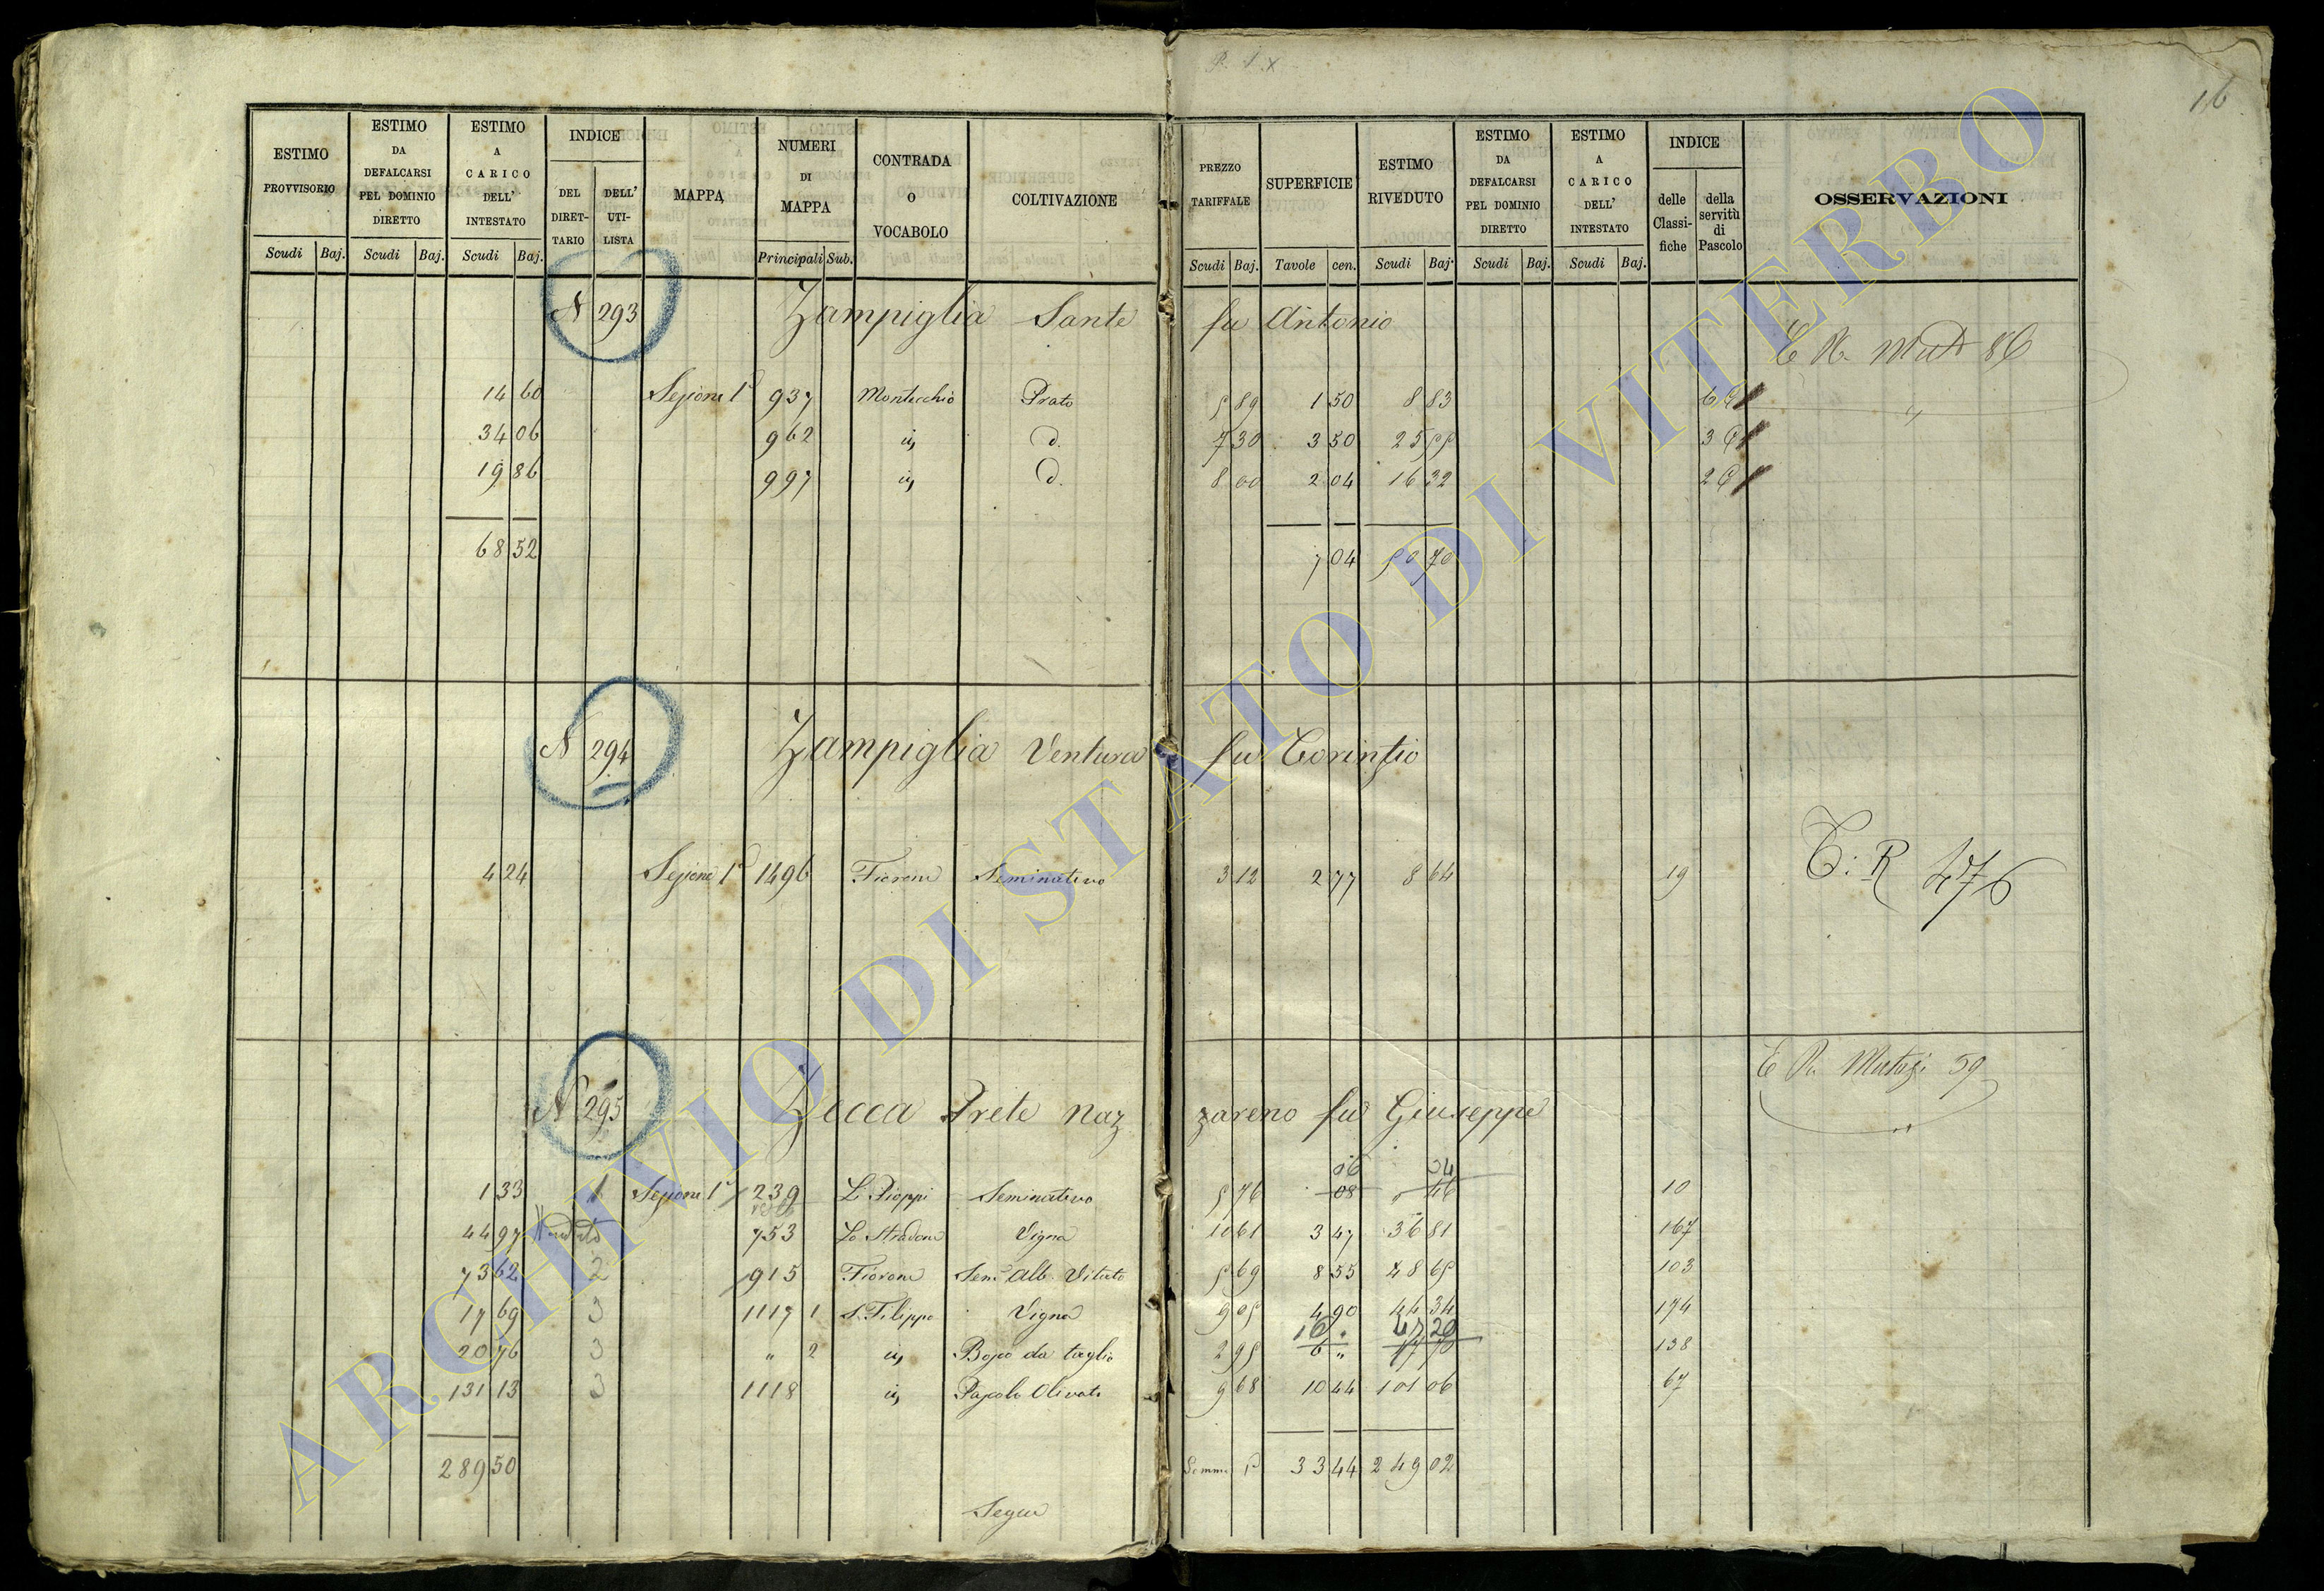 P. 1 x
16
ESTIMO PROVVISORIO | ESTIMO DA DEFALCARSI PEL DOMINIO DIRETTO | ESTIMO A CARICO DELL' INTESTATO | INDICE DEL DIRET-TARIO | DELL' UTI-LISTA | MAPPA | NUMERI DI MAPPA | CONTRADA O VOCABOLO | COLTIVAZIONE | PREZZO TARIFFALE | SUPERFICIE | ESTIMO RIVEDUTO | ESTIMO DA DEFALCARSI PEL DOMINIO DIRETTO | ESTIMO A CARICO DELL' INTESTATO | INDICE delle Classi-fiche | della servitù di Pascolo | OSSERVAZIONI
Scudi | Baj. | Scudi | Baj. | Scudi | Baj. | Principali | Sub. | Scudi | Baj. | Tavole | cen. | Scudi | Baj. | Scudi | Baj. | Scudi | Baj.
N 293 Zampiglia Sante fu Antonio
C R. Mut 86
14 60 Sezione 1ª 937 Montecchio Prato 5 89 1 50 8 83
34 06 962 d. 7 30 3 50 25 55
19 86 997 d. 8 00 2 04 16 32
68 52 7 04 50 70
N 294 Zampiglia Ventura fu Corinzio
4 24 Sezione 1ª 1496 Fiorone Seminativo 3 12 2 77 8 64 19 C: R 476
N 295 Zecca Prete Naz zareno fu Giuseppe
C R. Mutazi 59
16
1 33 1 Sezione 1ª 239 Li Pioppi Seminativo 5 76 08 46 10
44 97 753 Lo Stradone Vigna 10 61 3 47 36 81 167
73 62 2 915 Fiorone Sem. Alb. Vitato 5 69 8 55 48 65 103
17 69 3 1117 1 S. Filippo Vigna 9 05 4 90 44 34 174
20 76 3 " 2 Bosco da taglio 2 95 6 " 17 70 138
131 13 3 1118 Pascolo Olivato 9 68 10 44 101 06 67
289 50 Somma 33 44 249 02
Segue
ARCHIVIO DI STATO DI VITERBO